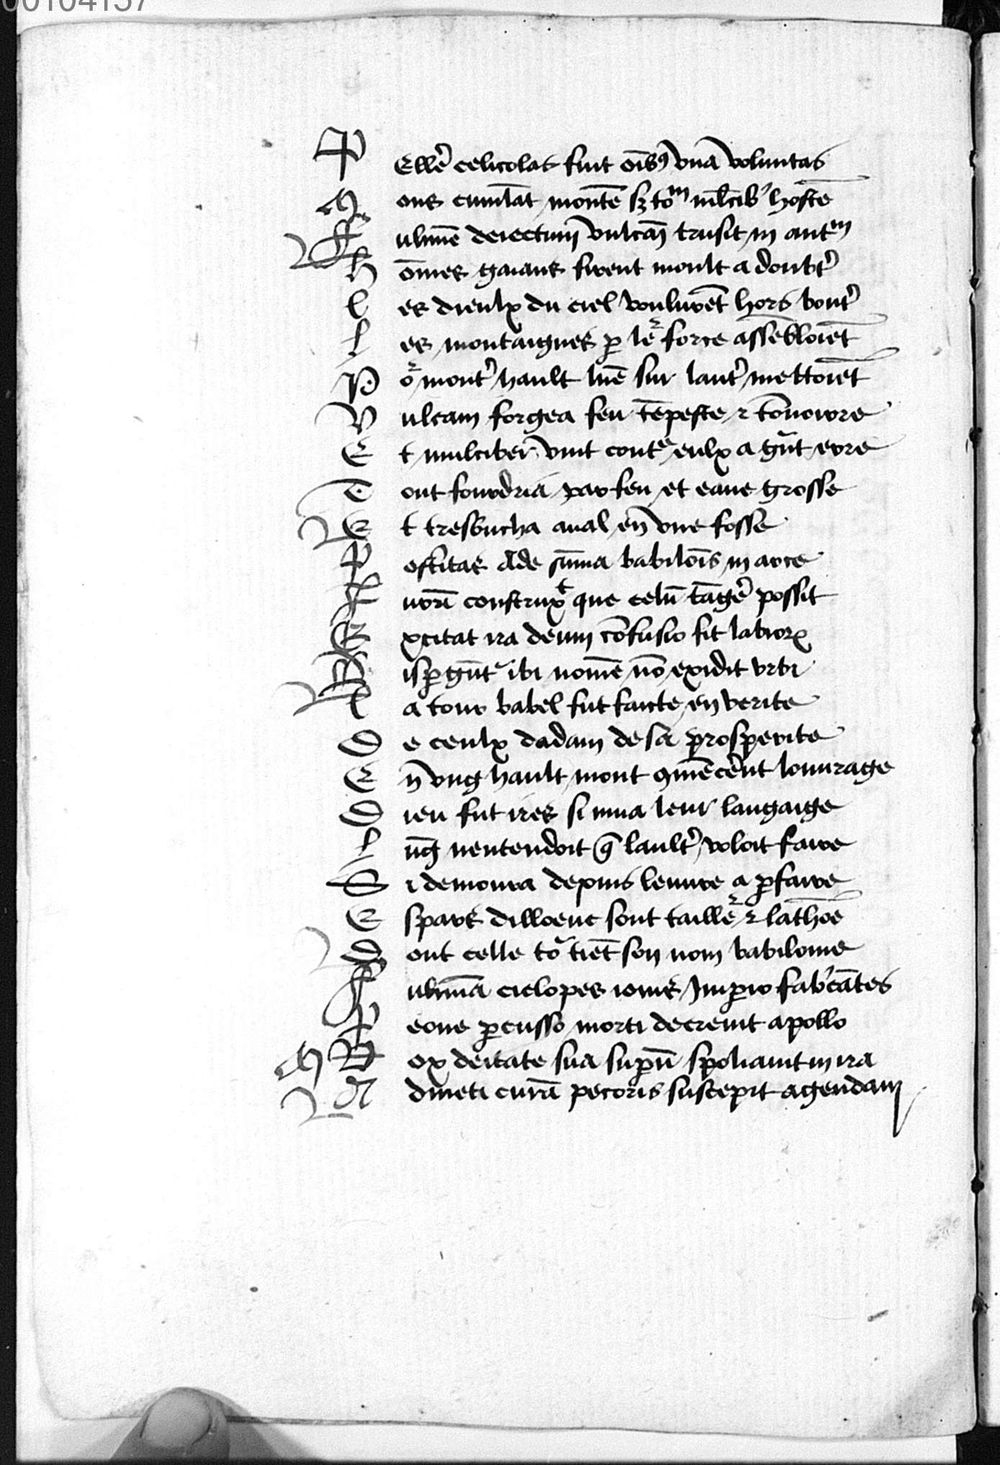 00104137
P ellẽ celicolas fuit oĩbꝰ vna voluntas
M ons cumlãt montẽ sꝫ toᵐ mlcib' hostẽ
F ulmẽ deiectum vulcaꝯ trusit in antᵐ
h õmes gaians firent moult a doubt'
l es dieulx du ciel voulurẽt hors bout'
l es montaignes ꝑ leʳ force assẽbloiẽt
P oʳ mont' hault lunẽ sur laut' mettoiẽt
V ulcam forgea feu tẽpeste ⁊ tõnoirre
E t mulciber vint contᵉ eulx a gñt erre
T out fourdria par feu et eaue grosse
E t tresbucha aual en vne fosse
P ostitas Ade sũma babilõis in arce
T urrĩ construxᵗ que celũ tãgẽ possit
E xcitat ira deum cõfusio fit labioꝝ
D isꝑgũtʳ ibi nomẽ nõ exidit vrbi
L a tour babel fut faicte en verite
D e ceulx dadam de sa prosperite
E n vng hault mont ꝯmẽcerẽt louurage
D ieu fut ires si mua leur langaige
l ũg nentendoit q̃ lault' voloit faire
S i demoura depuis leuure a ꝑfaire
E spars dilloeuc sont taillẽʳ ⁊ lathõe
D ont celle toʳ tiẽt son nom babilonne
F ulmĩa ciclopes iouis Imꝑio fab'cãtes
P eone ꝑcusso morti decreuit apollo
M ox deitate sua suꝑũ spoliauit in ira
A dmeti curã pecoris suscepit agendam